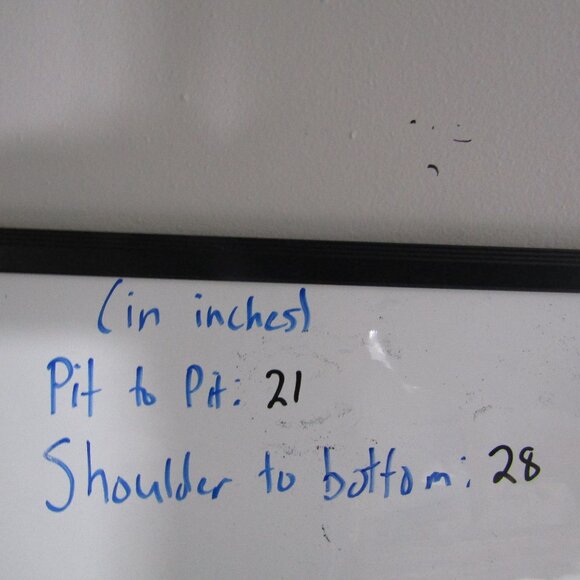 (in inches)
Pit to Pit: 21
Shoulder to bottom: 28